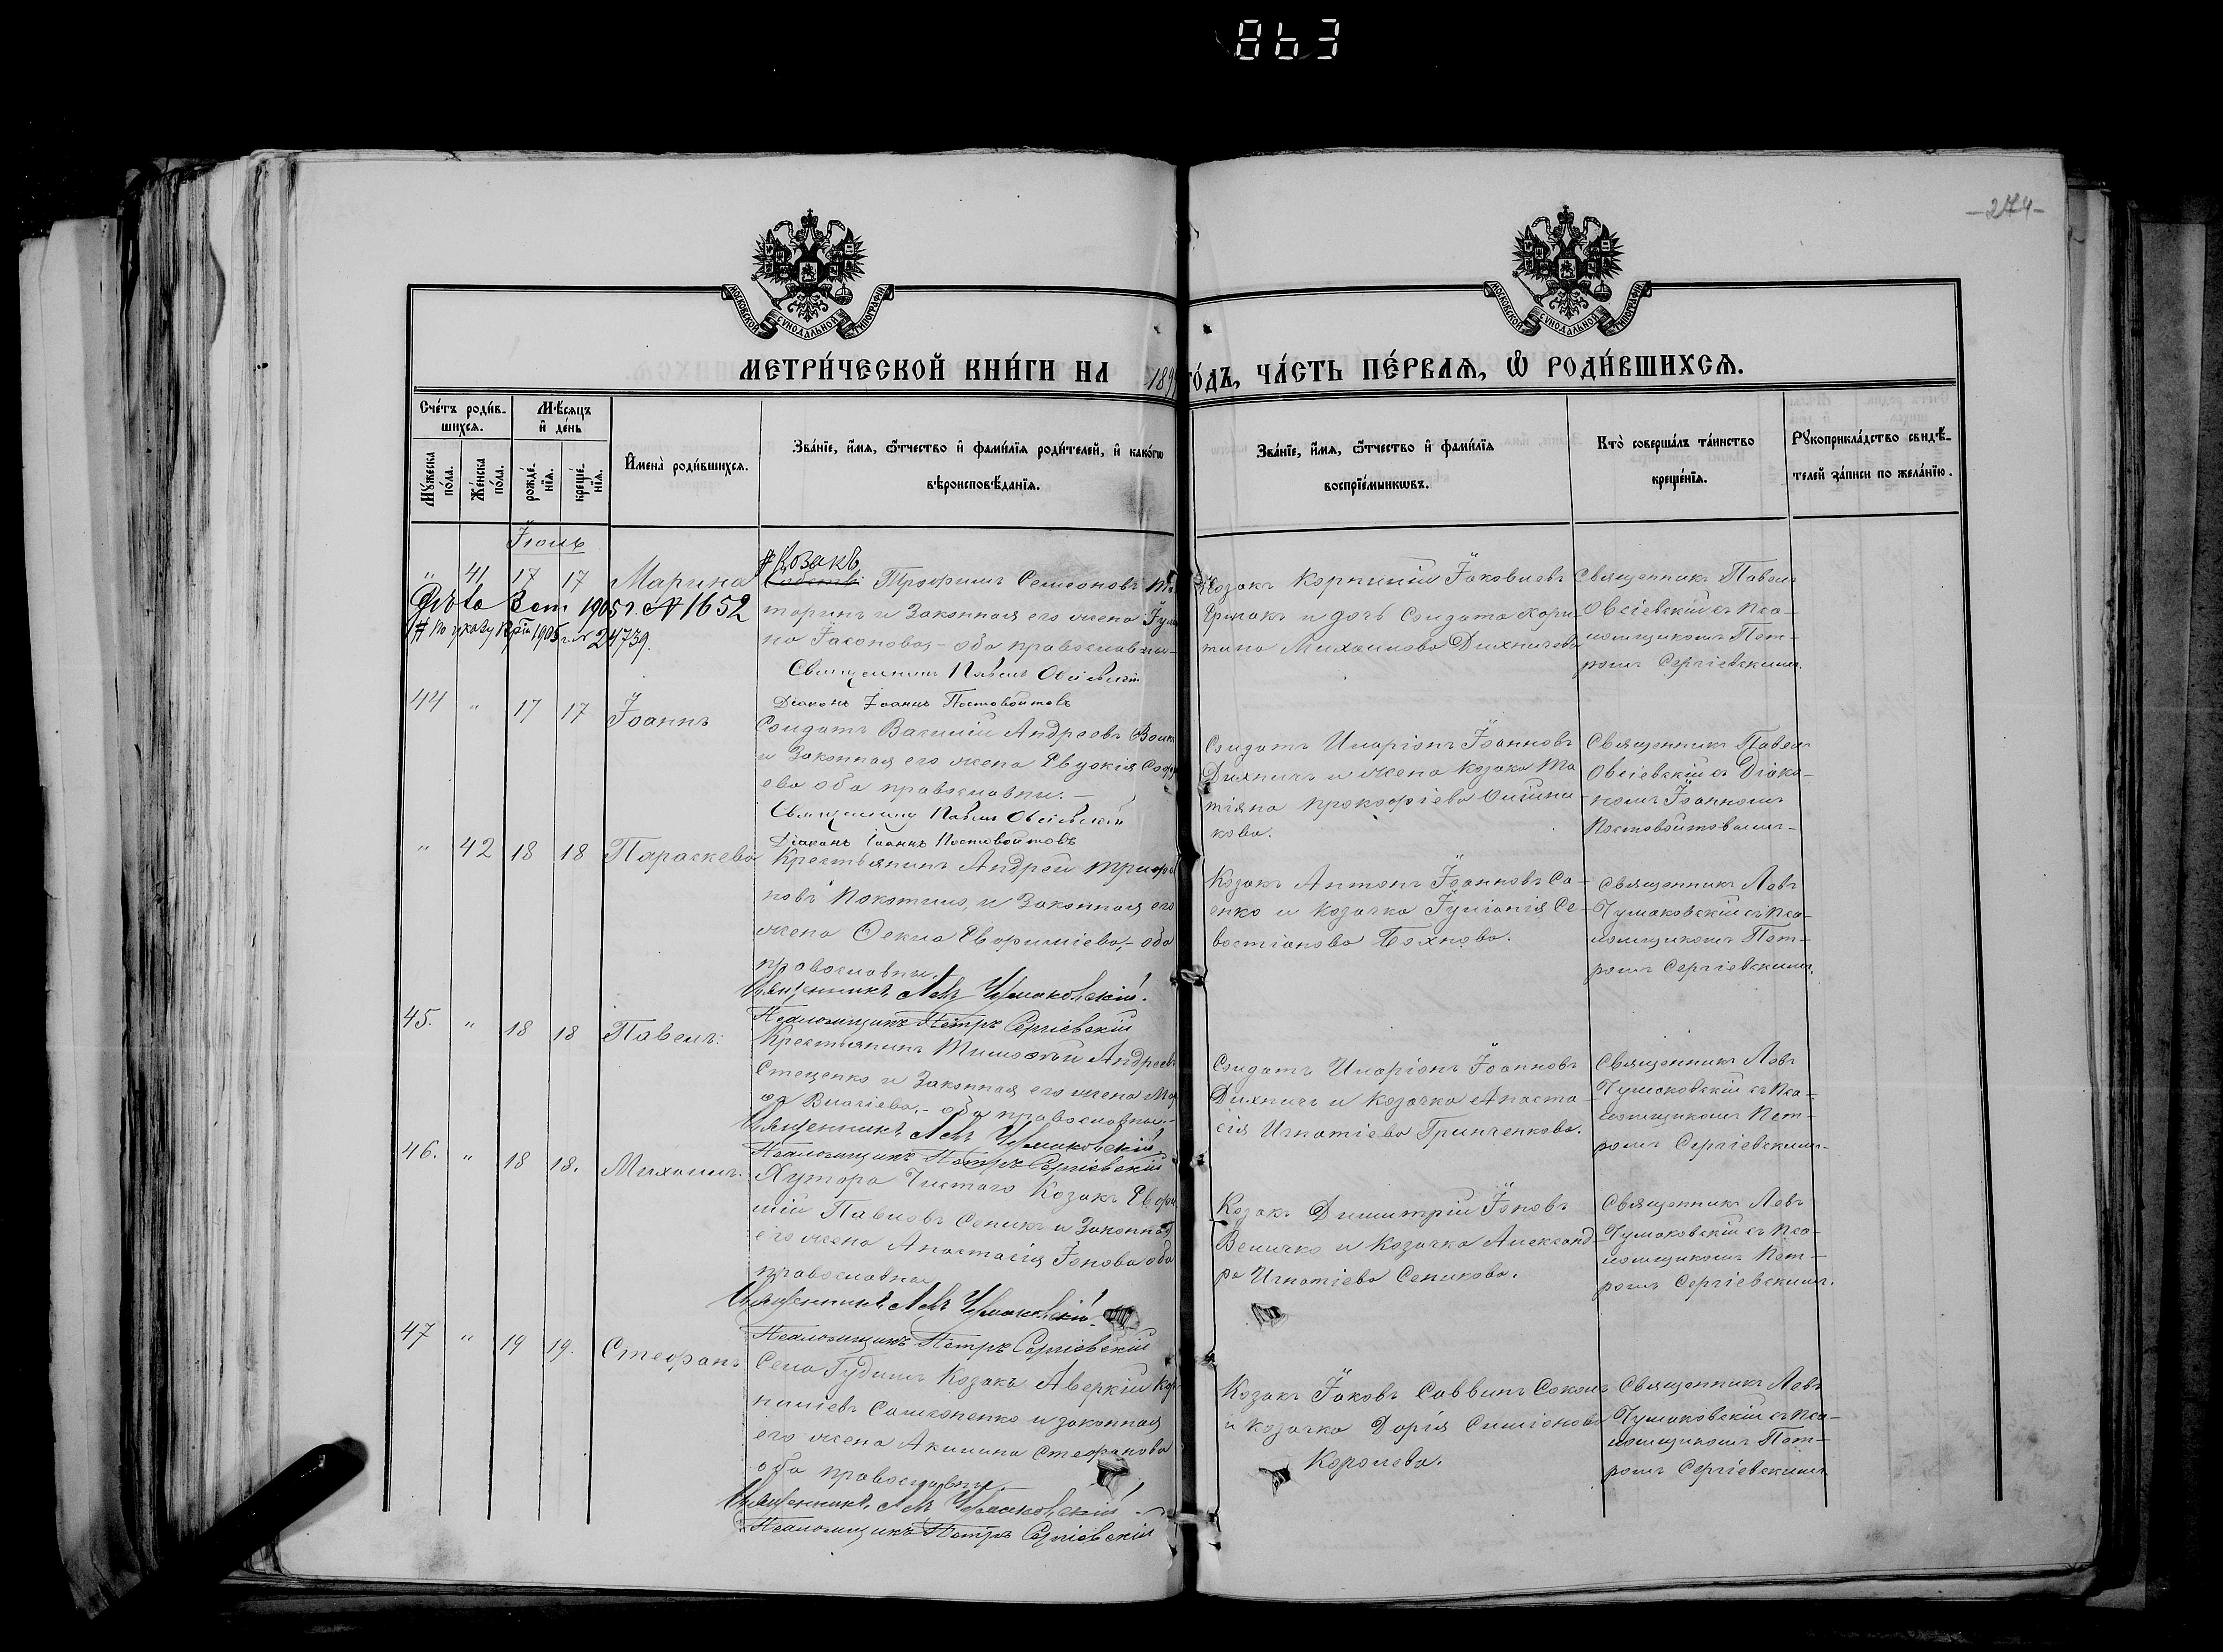 863
-274-
МОСКОВСКОЙ СѴНОДАЛЬНОЙ ТИПОГРАФІИ
МОСКОВСКОЙ СѴНОДАЛЬНОЙ ТИПОГРАФІИ
МЕТРИ́ЧЕСКОЙ КНИ́ГИ НА 189
ГО́ДЪ, ЧА́СТЬ ПЕ́РВАѦ, Ѽ РОДИ́ВШИХСѦ.
Сче́тъ роди́в-
шихсѧ.
Мꙋ́жеска по́ла.
Же́нска по́ла.
Мѣ́сѧцъ
и҆ де́нь
рожде́-нїѧ.
креще́-нїѧ.
И҆мена̀ роди́вшихсѧ.
Зва́нїе, и҆́мѧ, ѻ҆́тчество и҆ фами́лїѧ роди́телей, и҆ како́гѡ
вѣроисповѣ́данїѧ.
Зва́нїе, и҆́мѧ, ѻ҆́тчество и҆ фами́лїѧ
воспрїе́мникѡвъ.
Кто̀ соверша́лъ та́инство
креще́нїѧ.
Рꙋкоприкла́дство свидѣ́-
телей за́писи по жела́нїю.
Іюль
# Козакъ
" 41 17 17 Марина
Трофимъ Семеоновъ
1905 г. № 1652
# По указу 1905 г. № 24739.
и законная его жена
на Іасоновая - оба православны -
Священникъ Павелъ Овсіевскій
Діаконъ Іоаннъ Постовойтовъ
Козакъ Корнилій Іаковлевъ
Ермакъ и дочь Солдата Хари-
тина Михаилова Дихничева
Священникъ Павелъ
Овсіевскій съ Пса-
ломщикомъ Пет-
ромъ Сергіевскимъ.
44 " 17 17 Іоаннъ
Солдатъ Василій Андреевъ
и законная его жена Евдокія
ова оба православны. -
Священникъ Павелъ Овсіевскій
Діаконъ Іоаннъ Постовойтовъ
Солдатъ Иларіонъ Іоанновъ
Дихничъ и жена козака Та
тіяна Прокофіева
кова.
Священникъ Павелъ
Овсіевскій съ Діако-
номъ Іоанномъ
Постовойтовымъ -
" 42 18 18 Параскева
Крестьянинъ Андрей Трифо
новъ Покотило, и законная его
жена Ѳекла Евфиміева, - оба
православны.
Священникъ Левъ Чумаковскій.
Псаломщикъ Петръ Сергіевскій
Козакъ Антонъ Іоанновъ Са-
енко и козачка Іуліанія Се-
востіанова Бохнова.
Священникъ Левъ
Чумаковскій съ Пса-
ломщикомъ Пет-
ромъ Сергіевскимъ.
45. " 18 18 Павелъ.
Крестьянинъ Тимофей Андреевъ
Стеценко и законная его жена
Власіева, - оба православны. -
Священникъ Левъ Чумаковскій
Псаломщикъ Петръ Сергіевскій
Солдатъ Иларіонъ Іоанновъ
Дихничъ и козачка Анаста-
сія Игнатіева Гринченкова.
Священникъ Левъ
Чумаковскій съ Пса-
ломщикомъ Пет-
ромъ Сергіевскимъ -
46. " 18 18. Михаилъ.
Хутора Чистаго Козакъ Евфи
мій Павловъ Сепикъ и законная
его жена Анастасія Іонова оба
православны
Священникъ Левъ Чумаковскій
Псаломщикъ Петръ Сергіевскій
Козакъ Димитрій Іоновъ
Величко и козачка Александ-
ра Игнатіева Сепикова.
Священникъ Левъ
Чумаковскій съ Пса-
ломщикомъ Пет-
ромъ Сергіевскимъ.
47 " 19 19. Стефанъ
Села Гудимъ Козакъ Аверкій Кор
ниліевъ Самсоненко и законная
его жена Акилина Стефанова
оба православны.
Священникъ Левъ Чумаковскій
Псаломщикъ Петръ Сергіевскій
Козакъ Іаковъ Саввинъ Соколъ
и козачка Дарія Симіонова
Королева.
Священникъ Левъ
Чумаковскій съ Пса-
ломщикомъ Пет-
ромъ Сергіевскимъ